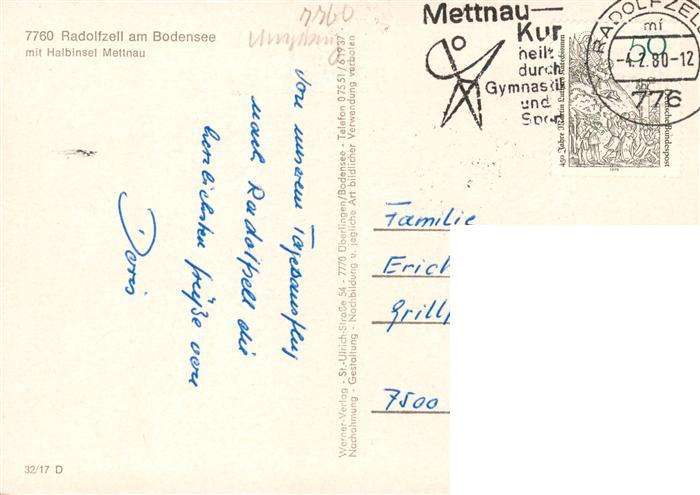 7760 Radolfzell am Bodensee
mit Halbinsel Mettnau
7760
Mettnau—
Kur
heilt
durch
Gymnastik
und
Sport
RADOLFZEL
mi
-4.2.80-12
776
50
450 Jahre Martin Luther Katechismus
Deutsche Bundespost
1979
Von unserem Tagesausflug
nach Radolfzell die
herzlichsten Grüße von
Doris
Werner-Verlag - St.-Ulrich-Straße 54 - 7770 Überlingen/Bodensee - Telefon 07551/61937
Nachahmung - Gestaltung - Nachbildung u. jegliche Art bildlicher Verwendung verboten
Familie
Erich
Grillp
7500
32/17 D